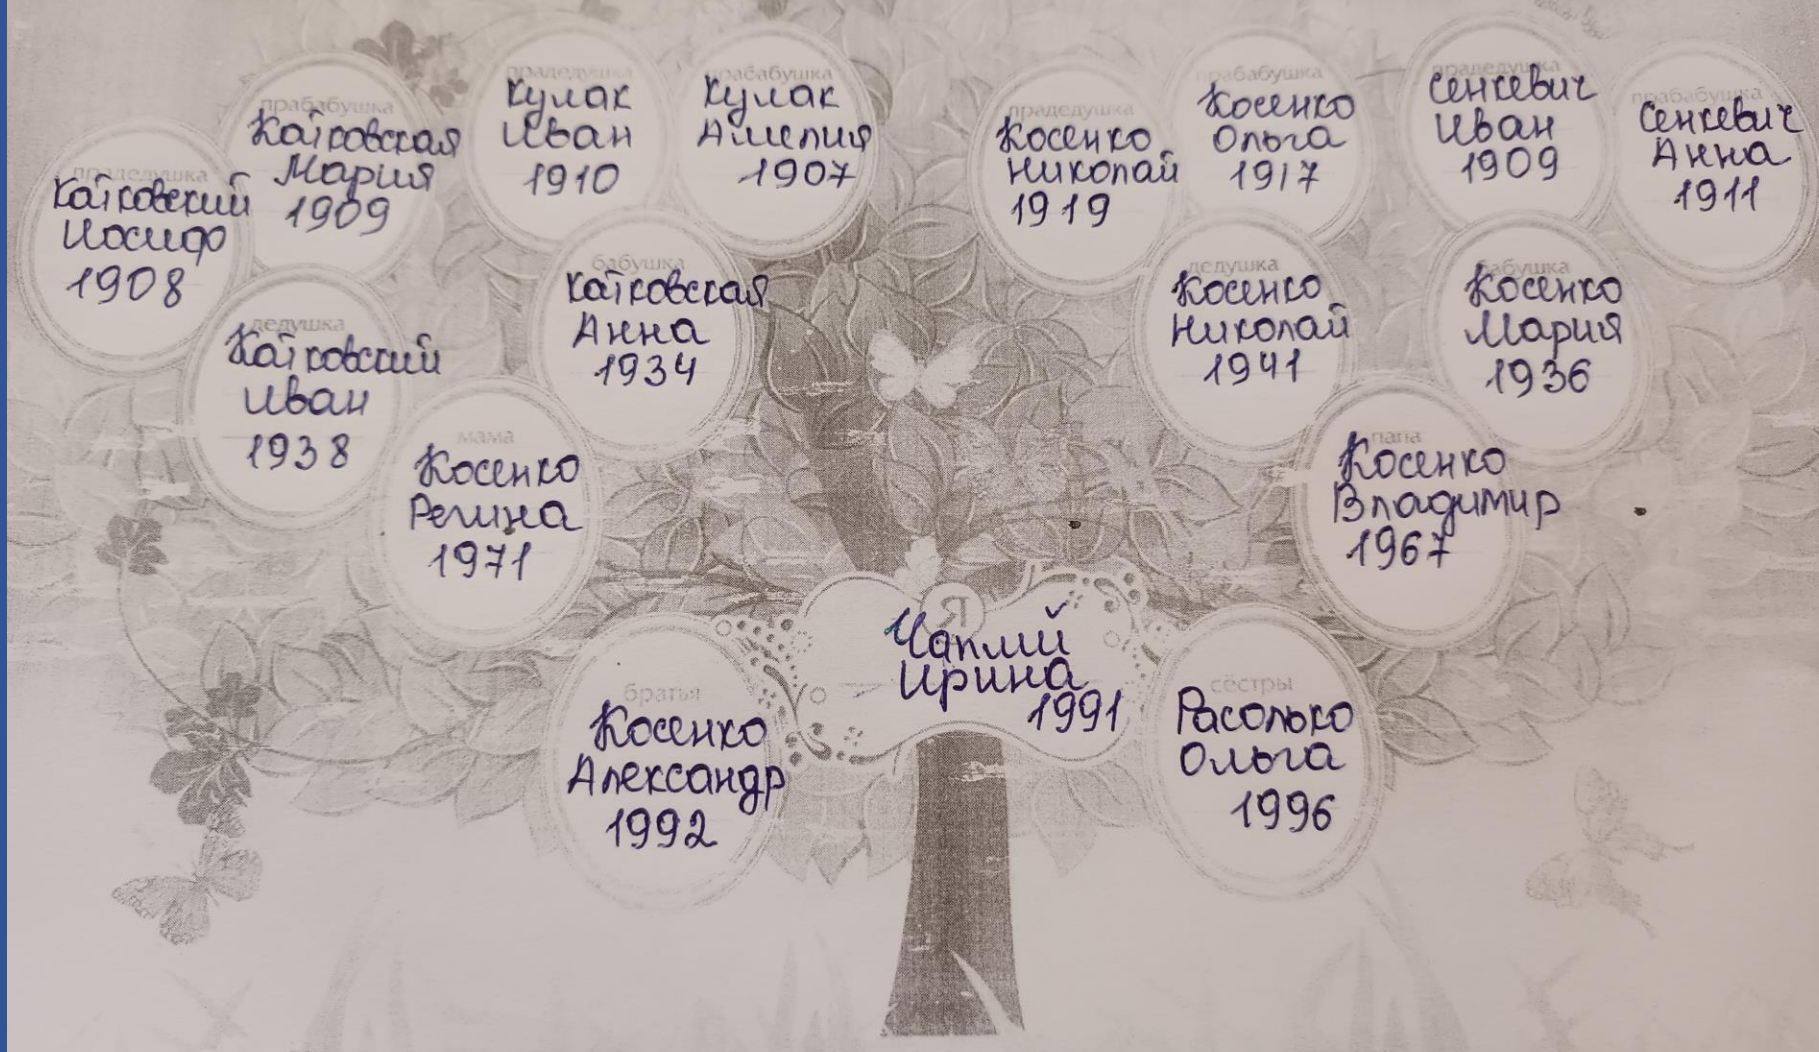 прадедушка
Катковский
Иосиф
1908
прабабушка
Катковская
Мария
1909
прадедушка
Кулак
Иван
1910
прабабушка
Кулак
Амелия
1907
прадедушка
Косенко
Николай
1919
прабабушка
Косенко
Ольга
1917
прадедушка
Сенкевич
Иван
1909
прабабушка
Сенкевич
Анна
1911
дедушка
Катковский
Иван
1938
бабушка
Катковская
Анна
1934
дедушка
Косенко
Николай
1941
бабушка
Косенко
Мария
1936
мама
Косенко
Регина
1971
папа
Косенко
Владимир
1967
Я
Чаплий
Ирина
1991
братья
Косенко
Александр
1992
сёстры
Расолько
Ольга
1996